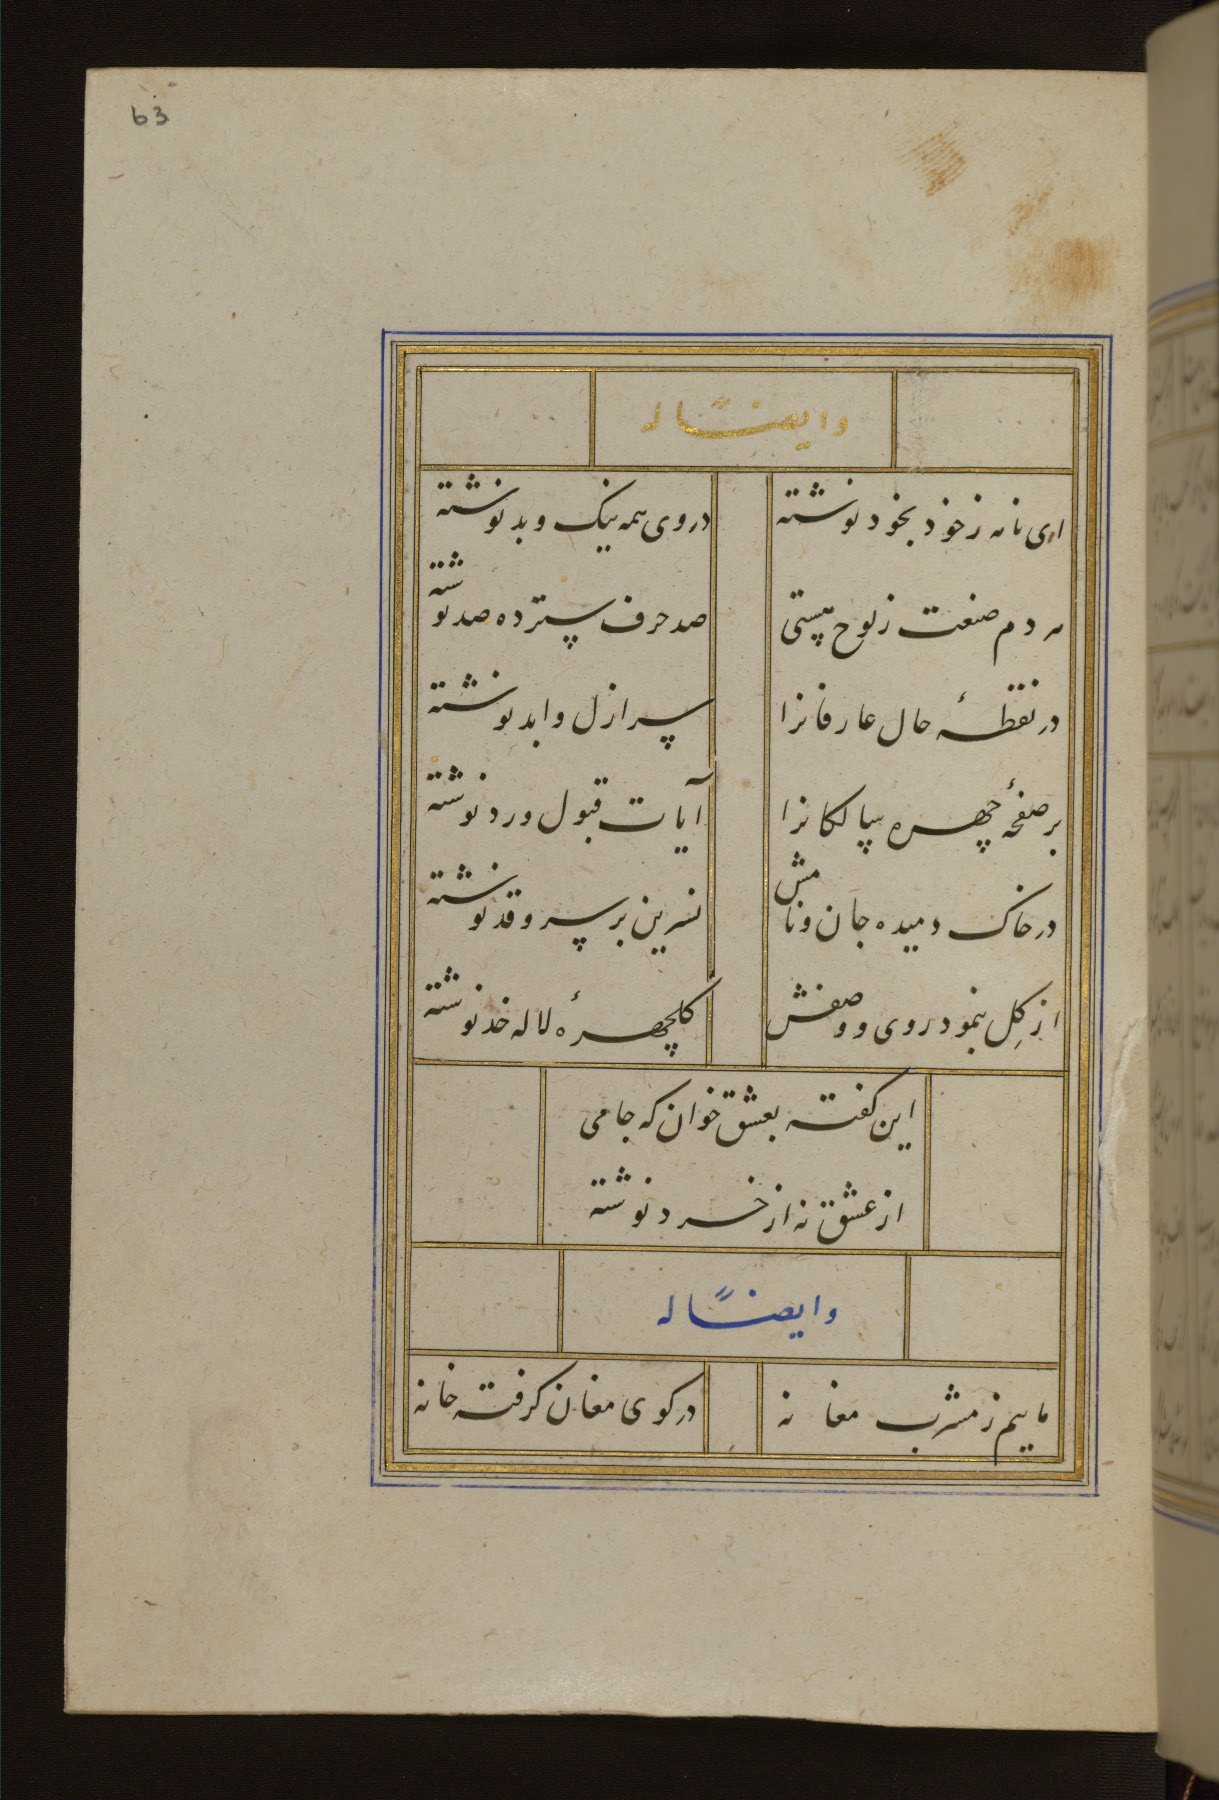 63
وایضًا له
ای نامه ز خود بخود نوشته در وی همه نیک و بد نوشته
هر دم صنعت ز لوح هستی صد حرف سترده صد نوشته
در نقطهٔ حال عارفانرا سر ازل و ابد نوشته
بر صفحهٔ چهره سالکانرا آیات قبول و رد نوشته
در خاک دمیده جان و نامش نسرین بر سرو قد نوشته
از کِل بنمود روی و وصفش کلچهرهٔ لاله خد نوشته
این کفته بعشق خوان که جامی
از عشق نه از خرد نوشته
وایضًا له
ماییم ز مشرب مغانه در کوی مغان کرفته خانه